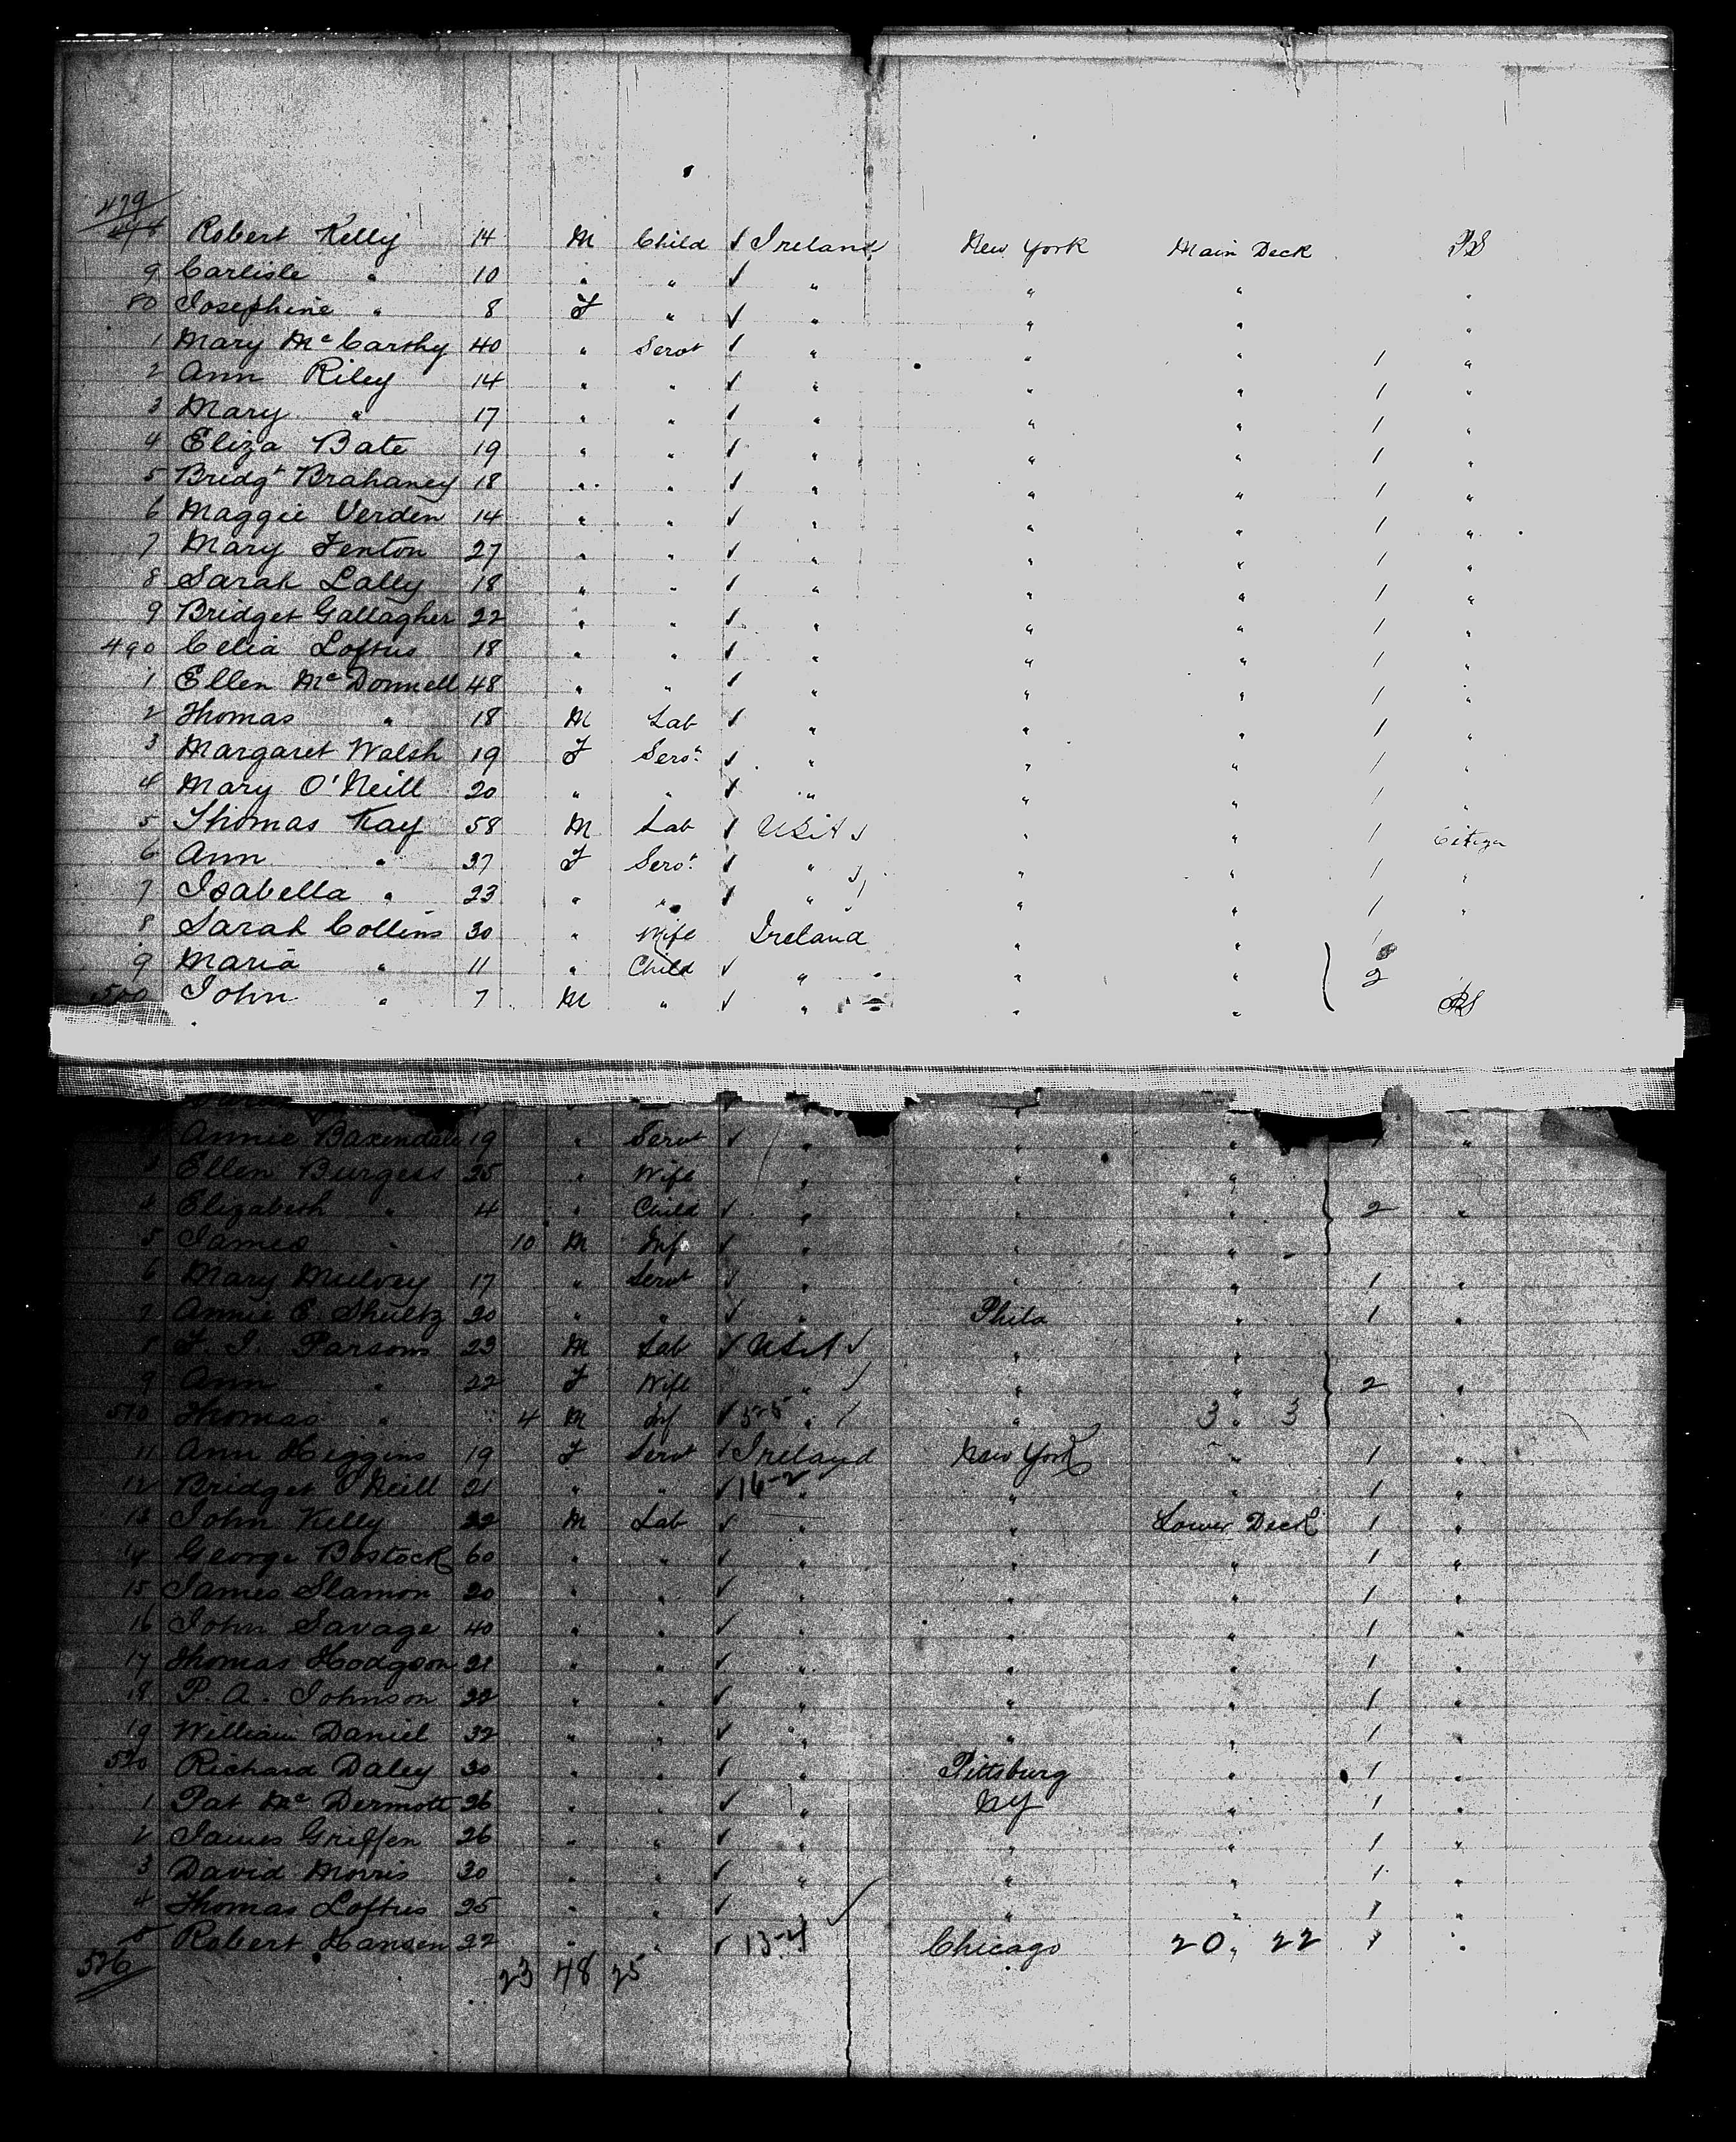 479
478 Robert Kelly 14 M Child ✓ Ireland New York Main Deck PS
9 Carlisle " 10 " " ✓ " " " "
80 Josephine " 8 F " ✓ " " " "
1 Mary McCarthy 40 " Servt ✓ " " " 1 "
2 Ann Riley 14 " " ✓ " " " 1 "
3 Mary " 17 " " ✓ " " " 1 "
4 Eliza Bate 19 " " ✓ " " " 1 "
5 Bridgt Brahaney 18 " " ✓ " " " 1 "
6 Maggie Verden 14 " " ✓ " " " 1 "
7 Mary Fenton 27 " " ✓ " " " 1 "
8 Sarah Lally 18 " " ✓ " " " 1 "
9 Bridget Gallagher 22 " " ✓ " " " 1 "
490 Celia Loftus 18 " " ✓ " " " 1 "
1 Ellen McDonnell 48 " " ✓ " " " 1 "
2 Thomas " 18 M Lab ✓ " " " 1 "
3 Margaret Walsh 19 F Servt ✓ " " " 1 "
4 Mary O'Neill 20 " " ✓ " " " 1 "
5 Thomas Kay 58 M Lab ✓ USA ✓ " " 1 Citizen
6 Ann " 37 F Servt ✓ " ✓ " " 1 "
7 Isabella " 23 " " ✓ " ✓ " " 1 "
8 Sarah Collins 30 " Wife Ireland " "
9 Maria " 11 " Child ✓ " " " 2
500 John " 7 M " ✓ " " " PS
Annie Baxendale 19 " Servt ✓ " " " 1 "
3 Ellen Burgess 25 " Wife " " "
4 Elizabeth " 4 " Child ✓ " " " 2 "
5 James " 10 M Inf ✓ " " "
6 Mary Mulvey 17 " Servt ✓ " " " 1 "
7 Annie E. Shultz 20 " " ✓ " Phila " 1 "
8 Parsons 23 M Lab ✓ USA ✓ " "
9 Ann " 22 F Wife " ✓ " " 2 "
510 Thomas " 4 M Inf ✓ 5-5 " " 3 " 3
11 Ann Higgins 19 F Servt ✓ Ireland New York " 1 "
12 Bridget O'Neill 21 " " ✓ 16-2 " " " 1 "
13 John Kelly 22 M Lab ✓ " " Lower Deck 1 "
14 George Bostock 60 " " ✓ " " " 1 "
15 James Slamon 20 " " ✓ " " " 1 "
16 John Savage 40 " " ✓ " " " 1 "
17 Thomas Hodgson 21 " " ✓ " " " 1 "
18 P. A. Johnson 22 " " ✓ " " " 1 "
19 William Daniel 32 " " ✓ " " " 1 "
520 Richard Daley 30 " " ✓ " Pittsburg " 1 "
1 Pat McDermott 26 " " ✓ " NY " 1 "
2 James Griffen 26 " " ✓ " " " 1 "
3 David Morris 30 " " ✓ " " " 1 "
4 Thomas Loftus 25 " " ✓ " " " 1 "
5 Robert Hansen 22 " " ✓ 13-4 Chicago 20 " 22 1 "
526 23 48 25